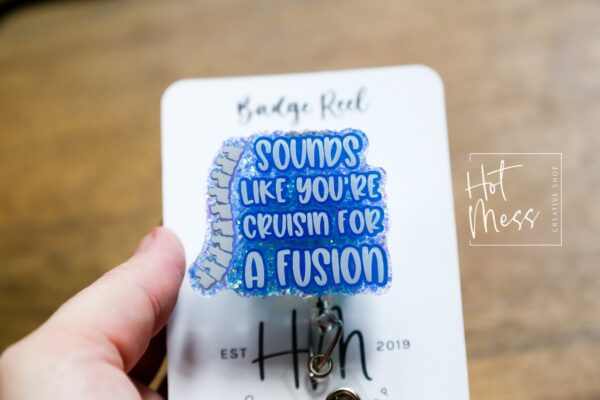 Badge Reel
SOUNDS
LIKE YOU'RE
CRUISIN FOR
A FUSION
Hot
Mess
CREATIVE SHOP
EST
2019